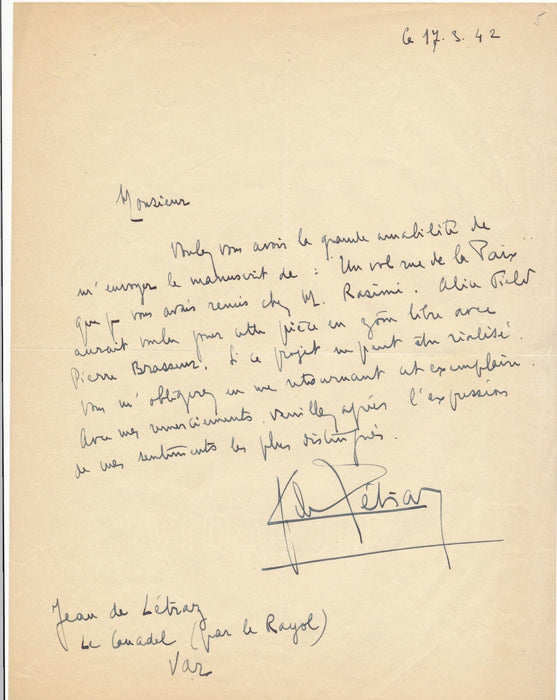 5
le 17.3.42
Monsieur
Voulez vous avoir la grande amabilité de
m'envoyer le manuscrit de : Un vol rue de la Paix
que je vous avais remis chez M. Rasimi. Alice Field
aurait voulu pour cette pièce en zône libre avec
Pierre Brasseur. Si ce projet ne peut être réalisé.
Vous m'obligerez en me retournant cet exemplaire.
Avec mes remerciements veuillez agréer l'expression
de mes sentiments les plus distingués.
J de Létraz
Jean de Létraz
Le Canadel (par le Rayol)
Var